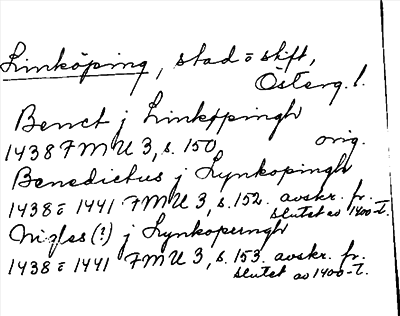 Linköping, stad o stift,
Österg. l.
Benct j Linköpingh
1438 FMU 3, s. 150. orig.
Benedictus j Lynkopingh
1438 o 1441 FMU 3, s. 152. avskr. fr.
slutet av 1400-t.
Nigles (?) j Lynkoperngh
1438 o 1441 FMU 3, s. 153. avskr. fr.
slutet av 1400-t.